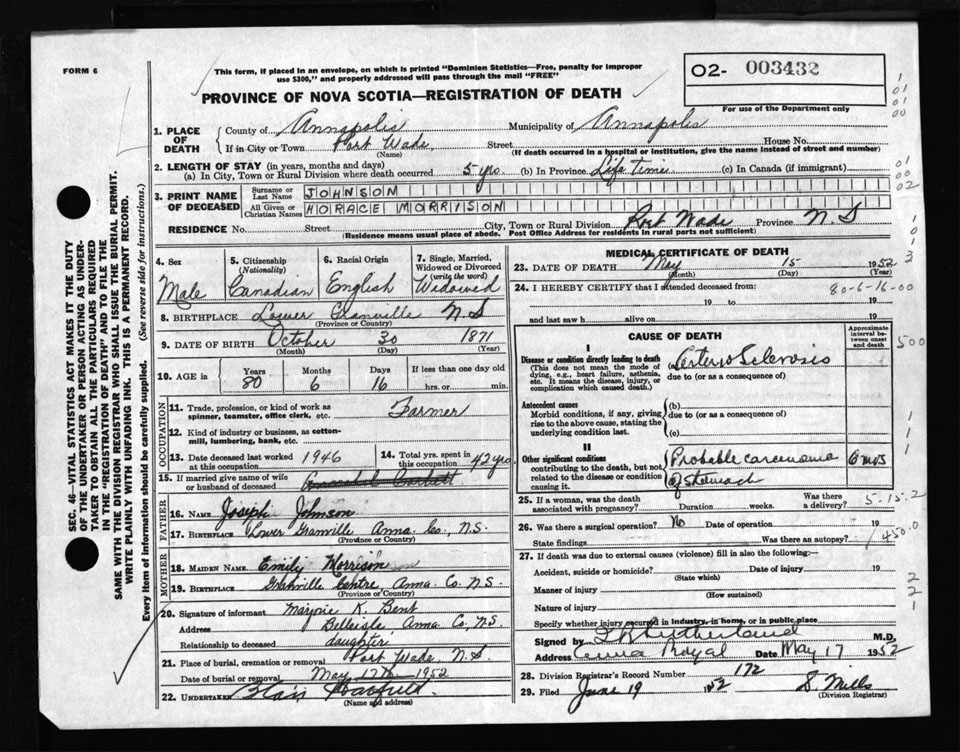 FORM 6
This form, if placed in an envelope, on which is printed "Dominion Statistics—Free, penalty for improper
use $300," and properly addressed will pass through the mail "FREE"
02- 003432
PROVINCE OF NOVA SCOTIA—REGISTRATION OF DEATH
For use of the Department only
1. PLACE OF DEATH
County of Annapolis Municipality of Annapolis
If in City or Town Port Wade Street House No.
(Name) (If death occurred in a hospital or institution, give the name instead of street and number)
2. LENGTH OF STAY (in years, months and days)
(a) In City, Town or Rural Division where death occurred 5 yrs (b) In Province Life time (c) In Canada (if immigrant)
3. PRINT NAME OF DECEASED
Surname or Last Name JOHNSON
All Given or Christian Names HORACE MORRISON
RESIDENCE No. Street City, Town or Rural Division Port Wade Province N.S
(Residence means usual place of abode. Post Office Address for residents in rural parts not sufficient)
SEC. 46—VITAL STATISTICS ACT MAKES IT THE DUTY
OF THE UNDERTAKER OR PERSON ACTING AS UNDER-
TAKER TO OBTAIN ALL THE PARTICULARS REQUIRED
IN THE "REGISTRATION OF DEATH" AND TO FILE THE
SAME WITH THE DIVISION REGISTRAR WHO SHALL ISSUE THE BURIAL PERMIT.
WRITE PLAINLY WITH UNFADING INK. THIS IS A PERMANENT RECORD.
Every item of information should be carefully supplied. (See reverse side for instructions.)
4. Sex
Male
5. Citizenship
(Nationality)
Canadian
6. Racial Origin
English
7. Single, Married,
Widowed or Divorced
(write the word)
Widowed
8. BIRTHPLACE Lower Granville N.S
(Province or Country)
9. DATE OF BIRTH October 30 1871
(Month) (Day) (Year)
10. AGE in Years Months Days If less than one day old
80 6 16 hrs. or min.
OCCUPATION
11. Trade, profession, or kind of work as
spinner, teamster, office clerk, etc. Farmer
12. Kind of industry or business, as cotton-
mill, lumbering, bank, etc.
13. Date deceased last worked
at this occupation 1946
14. Total yrs. spent in
this occupation 42 yrs
15. If married give name of wife
or husband of deceased Corbett
FATHER
16. NAME Joseph Johnson
17. BIRTHPLACE Lower Granville Anna. Co., N.S.
(Province or Country)
MOTHER
18. MAIDEN NAME Emily Morrison
19. BIRTHPLACE Granville Centre, Anna. Co. N.S.
(Province or Country)
20. Signature of informant Marjorie K. Bent
Address Belleisle Anna. Co., N.S.
Relationship to deceased daughter
21. Place of burial, cremation or removal Port Wade N.S
Date of burial or removal May 17th 1952
22. UNDERTAKER
(Name and address)
MEDICAL CERTIFICATE OF DEATH
23. DATE OF DEATH May 15 1952
(Month) (Day) (Year)
24. I HEREBY CERTIFY that I attended deceased from:
80-6-16-00
19 to 19
and last saw h alive on 19
CAUSE OF DEATH
Approximate
interval between
onset
and death
I
Disease or condition directly leading to death
(This does not mean the mode of
dying, e.g., heart failure, asthenia,
etc. It means the disease, injury, or
complication which caused death.)
Arterio Sclerosis
due to (or as a consequence of)
Antecedent causes
Morbid conditions, if any, giving
rise to the above cause, stating the
underlying condition last.
(b)
due to (or as a consequence of)
(c)
II
Other significant conditions
contributing to the death, but not
related to the disease or condition
causing it.
Probable carcinoma
of stomach
6 mos
25. If a woman, was the death
associated with pregnancy? Duration weeks.
Was there
a delivery?
5-15-2
26. Was there a surgical operation? No Date of operation 19
State findings Was there an autopsy?
27. If death was due to external causes (violence) fill in also the following:—
Accident, suicide or homicide? Date of injury 19
(State which)
Manner of injury
(How sustained)
Nature of injury
Specify whether injury occurred in industry, in home, or in public place
Signed by Sutherland M.D.
Address Anna Royal Date May 17 1952
28. Division Registrar's Record Number 172
29. Filed June 19 1952 S. Mills
(Division Registrar)